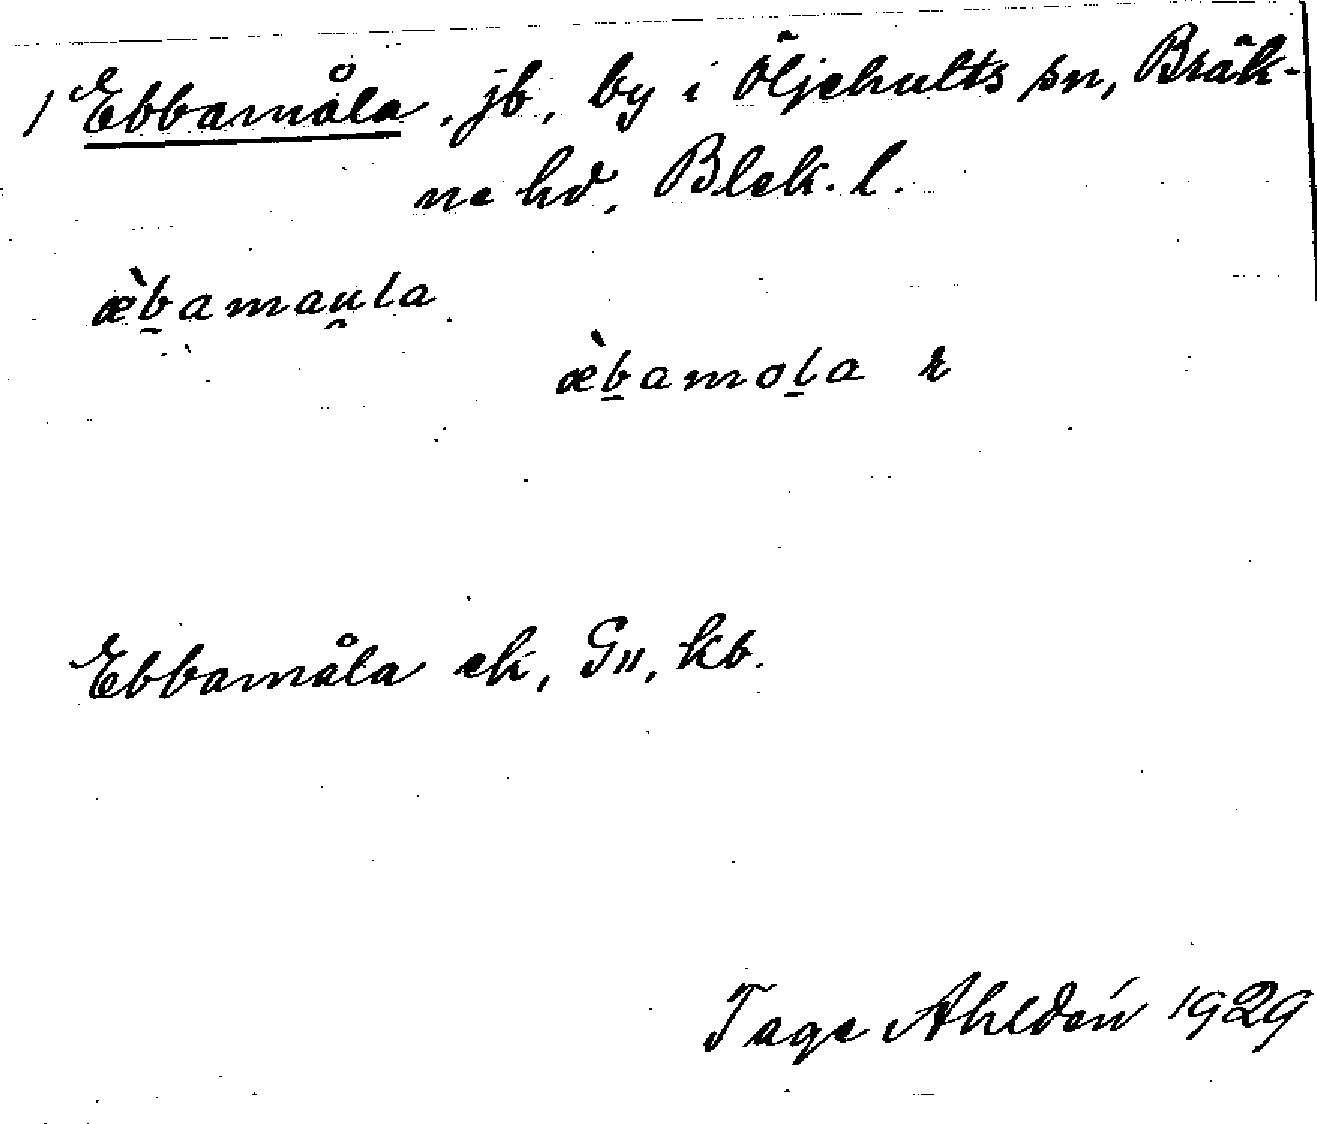 1 Ebbamåla, jb, by i Öljehults sn, Bräk-
ne hd, Blek. l.
æ̀b̠amau̯la
æ̀b̠amol̠a r
Ebbamåla ek, G", kb.
Tage Ahldén 1929